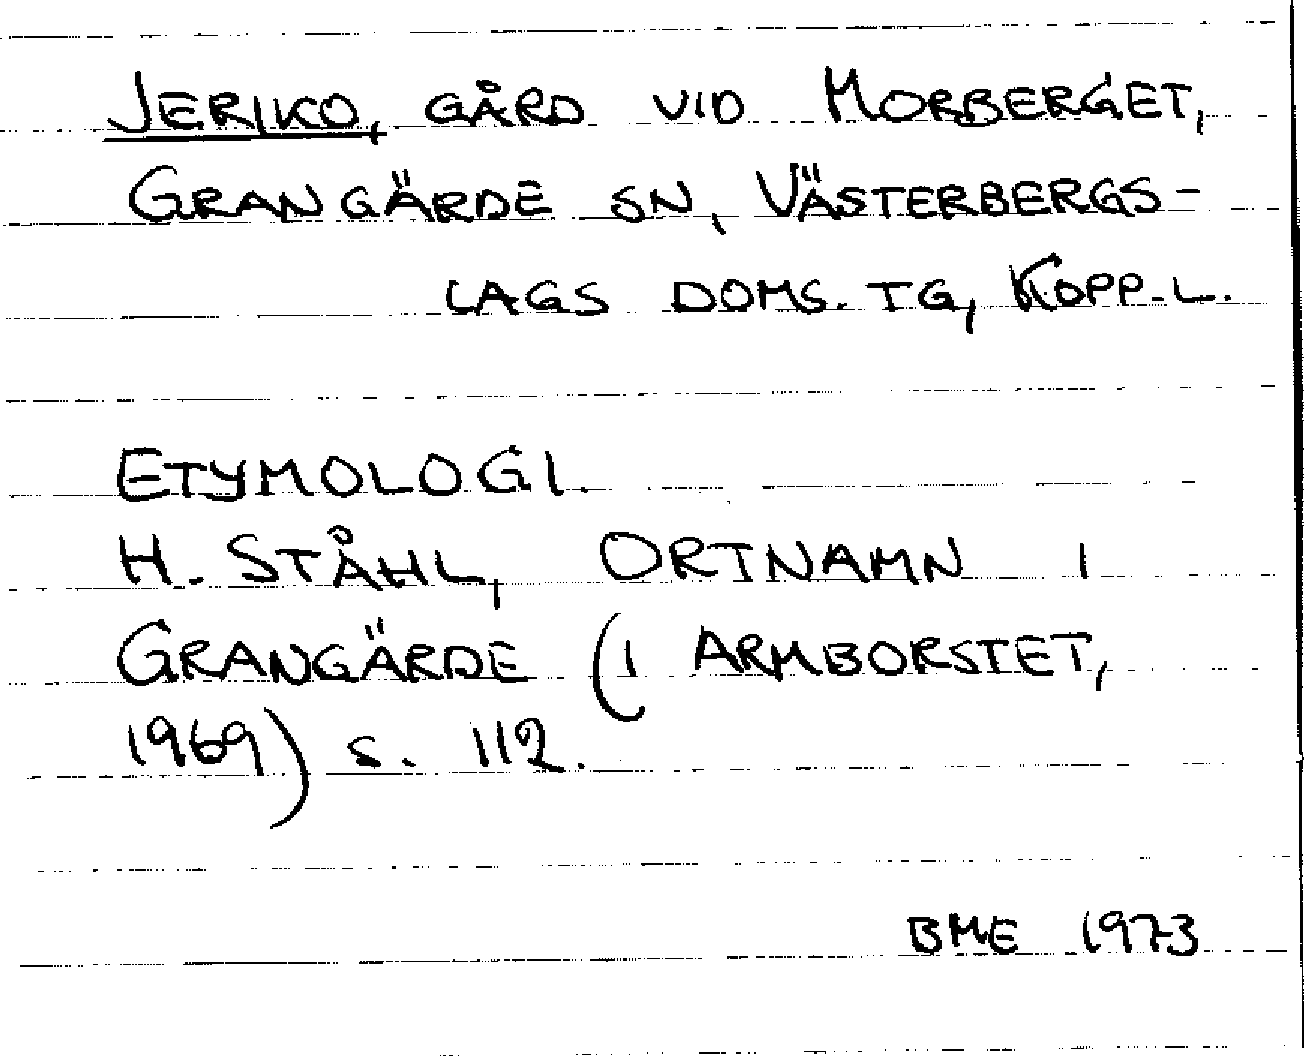 JERIKO, GÅRD VID MORBERGET,
GRANGÄRDE SN, VÄSTERBERGS-
LAGS DOMS. TG, KOPP. L.
ETYMOLOGI.
H. STÅHL, ORTNAMN I
GRANGÄRDE (I ARMBORSTET,
1969) S. 112.
BME 1973